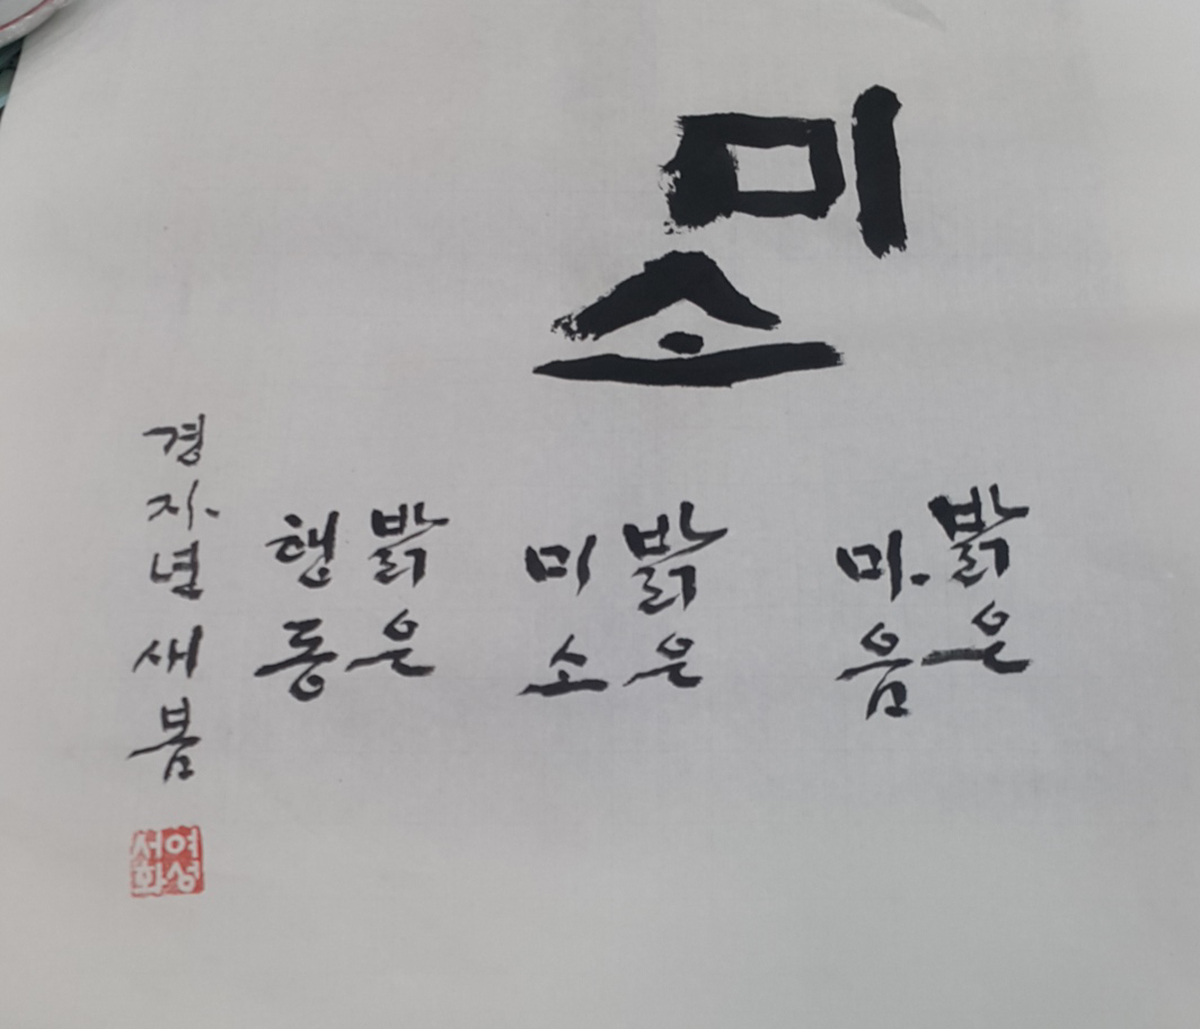 미소
밝은
마음
밝은
미소
밝은
행동
경자년 새봄
여성
서화